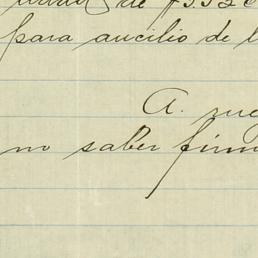 de
para aucilio de l
A. rue
no saber firm